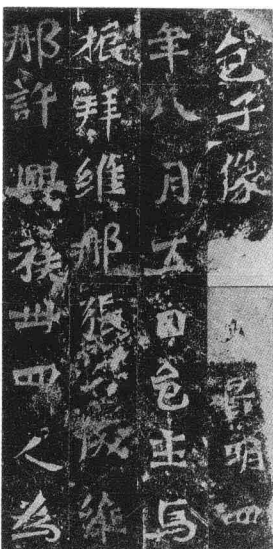 邑子像 景明四
年八月五日邑主馬
振拜維那張子成維
那許興族卅四人為